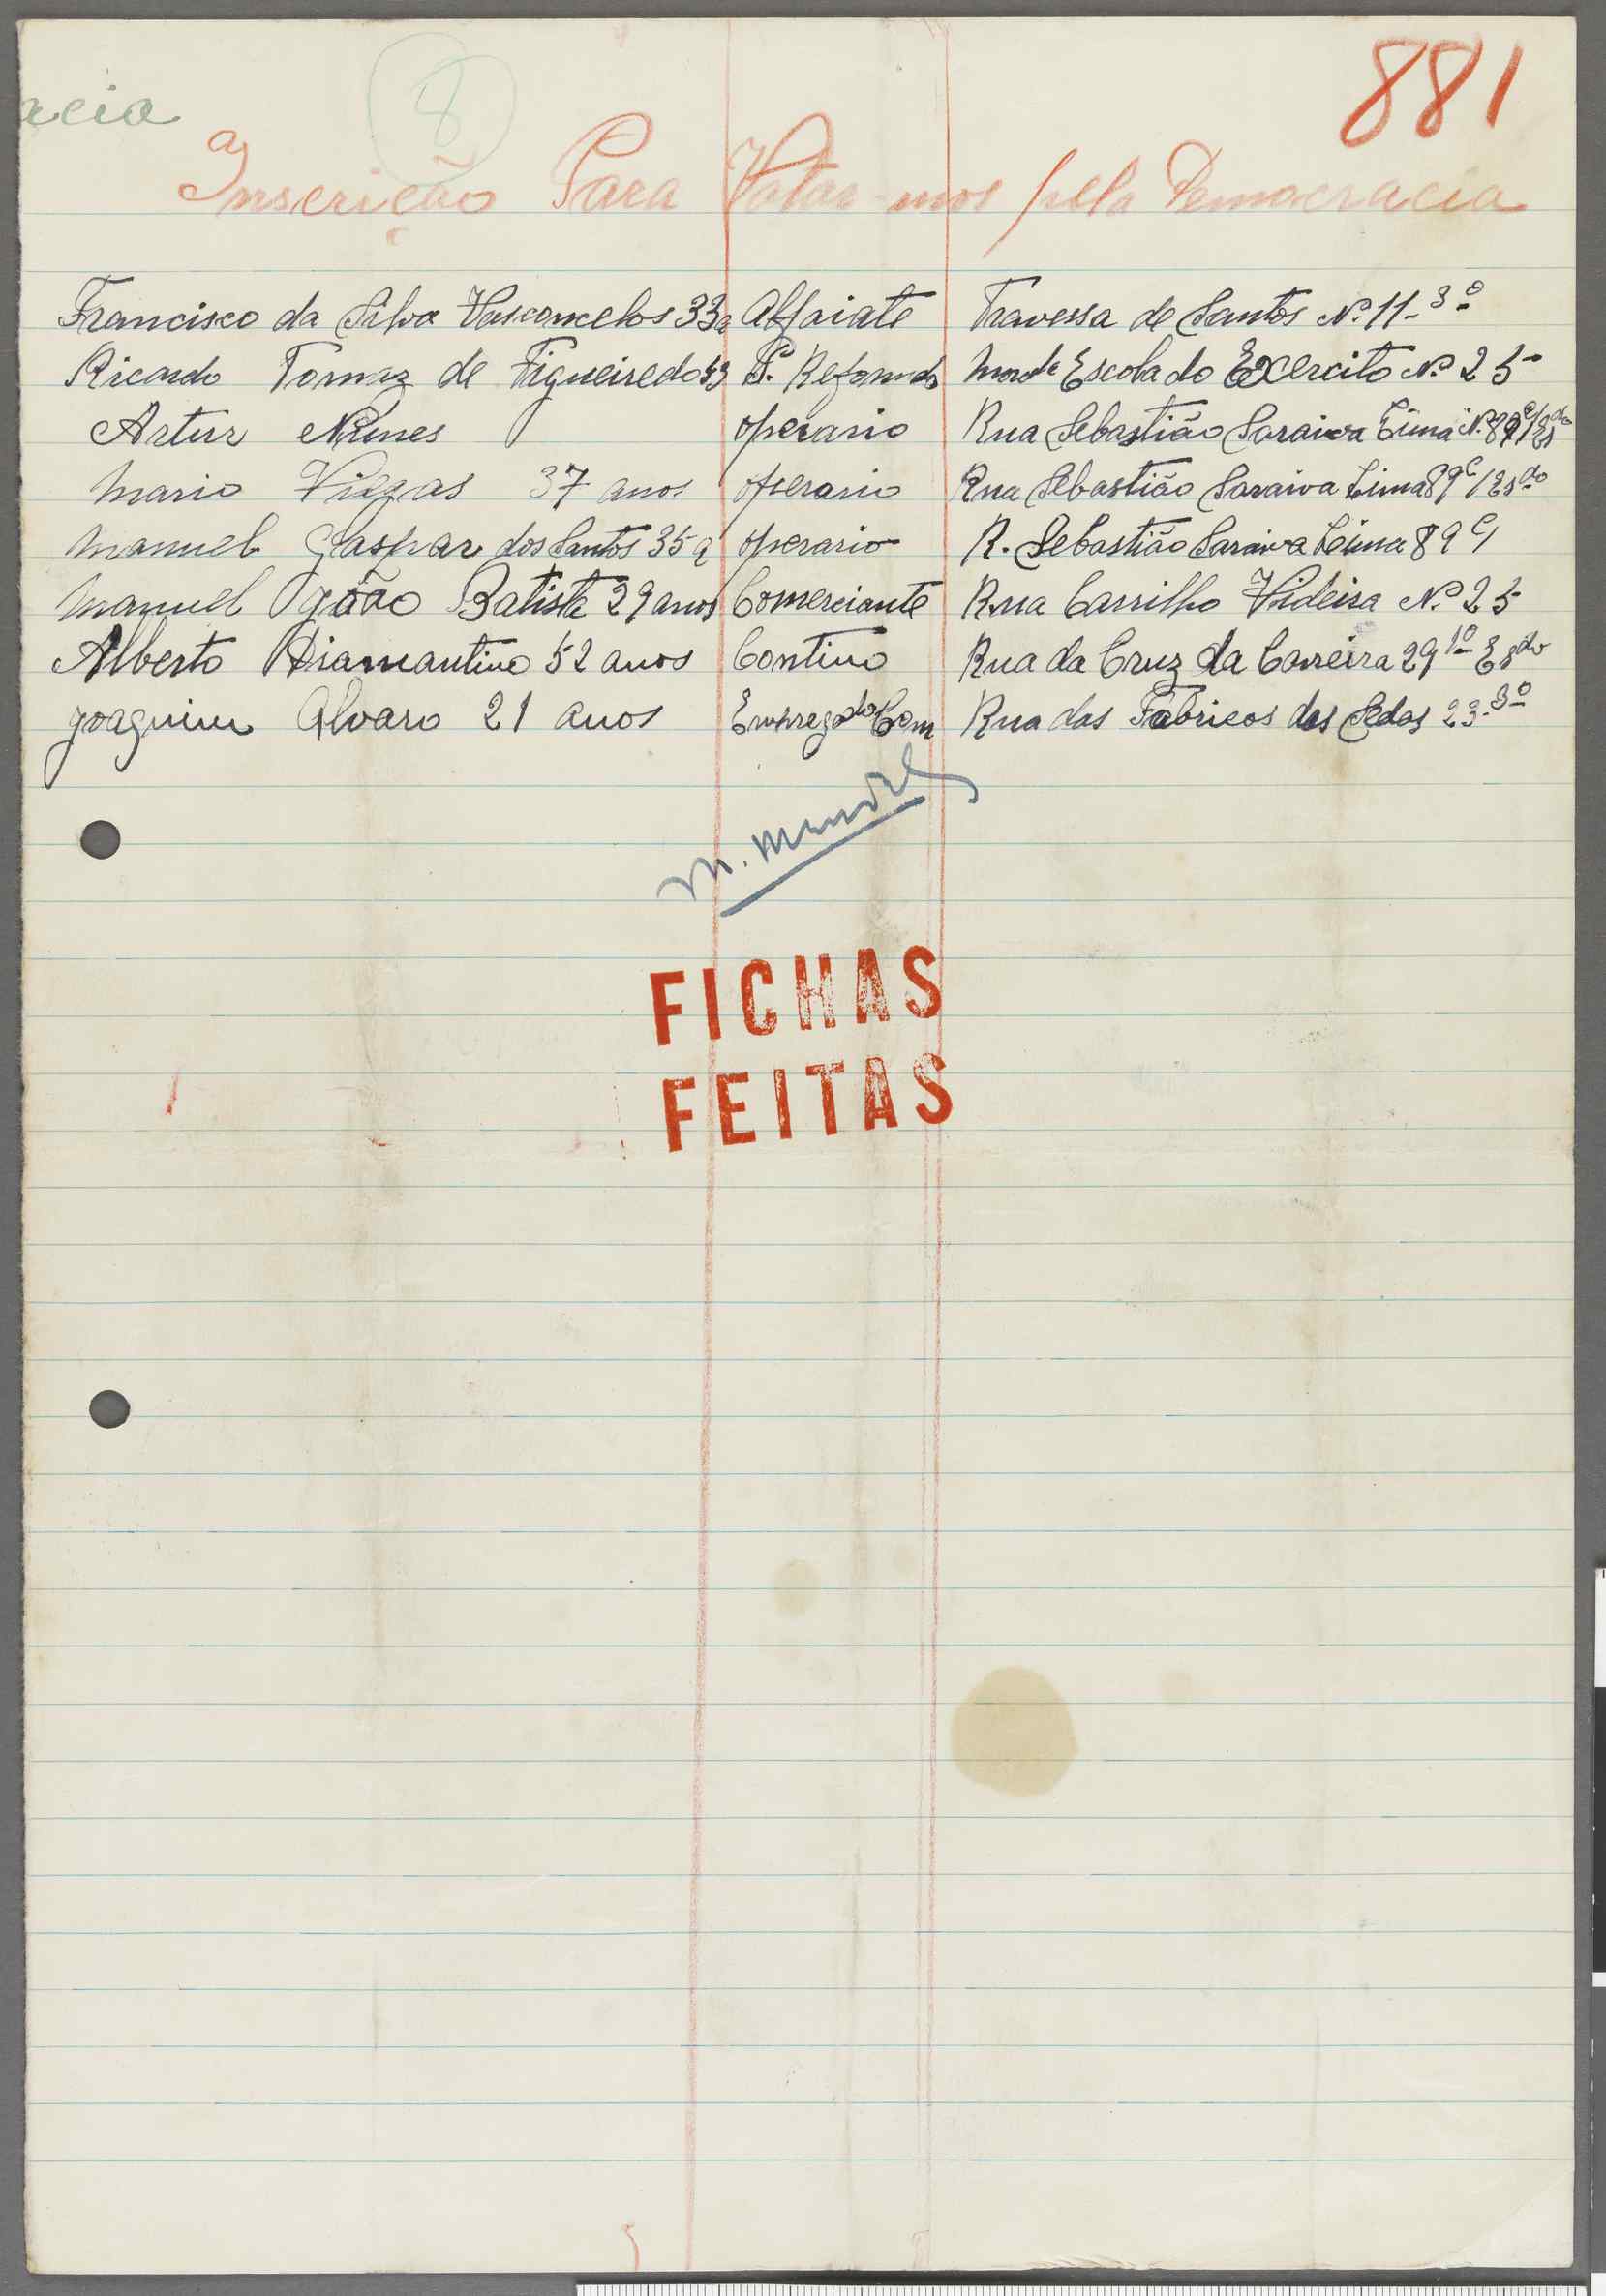 acia
8
881
Inscrição Para Votar-mos pela Democracia
Francisco da Silva Vasconcelos 33a Alfaiate Travessa de Santos Nº 11-3º
Ricardo Tomaz de Figueiredo 53 P. Reformado Escola do Exercito Nº 25
Artur Nunes operario Rua Sebastião Saraiva Lima Nº 89
Mario Viegas 37 anos operario Rua Sebastião Saraiva Lima 89 c/ Esdo
Manuel Gaspar dos Santos 35 a operario R. Sebastião Saraiva Lima 89 c/
Manuel João Batista 29 anos Comerciante Rua Carrilho Videira Nº 25
Alberto Diamantino 52 anos Contino Rua da Cruz da Carreira 29 1º Esdo
Joaquim Alvaro 21 anos Empregado Com Rua das Fabricas das Sedas 23-3º
M. Mendes
FICHAS
FEITAS